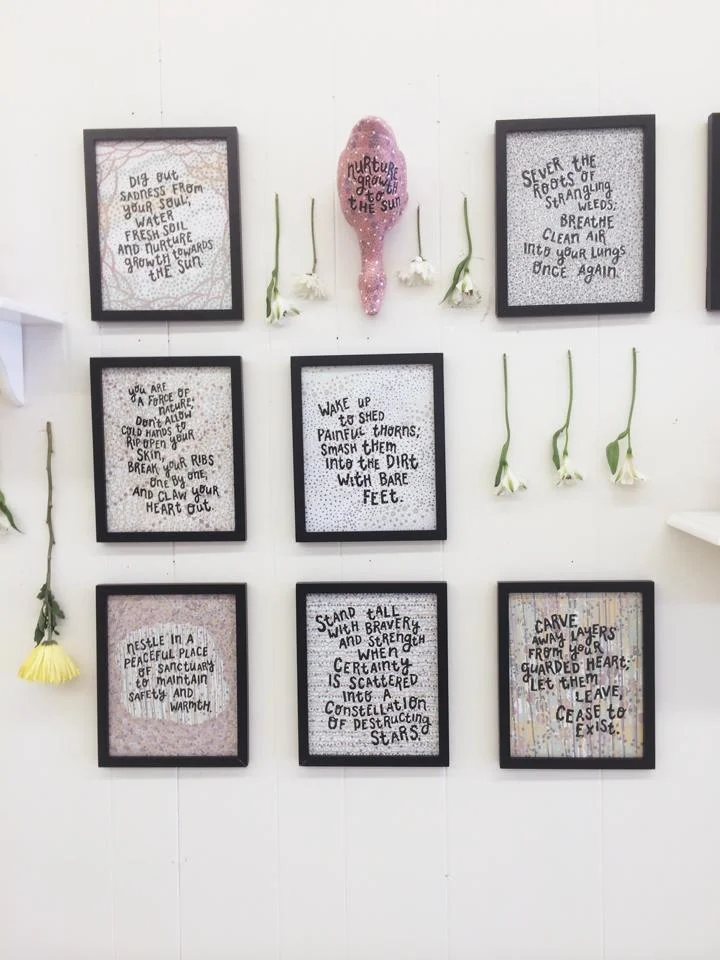 Dig out
sadness from
your soul,
water
fresh soil
and nurture
growth towards
the sun.
nurture
growth
to
the sun
Sever the
roots of
strangling
weeds,
breathe
clean air
into your lungs
once again.
you are
a force of
nature,
don't allow
cold hands to
rip open your
skin,
break your ribs
one by one,
and claw your
heart out.
Wake up
to shed
painful thorns,
smash them
into the dirt
with bare
feet.
nestle in a
peaceful place
of sanctuary
to maintain
safety and
warmth.
Stand tall
with bravery
and strength
when
certainty
is scattered
into a
constellation
of destructing
stars.
Carve
away layers
from your
guarded heart;
let them
leave,
cease to
exist.